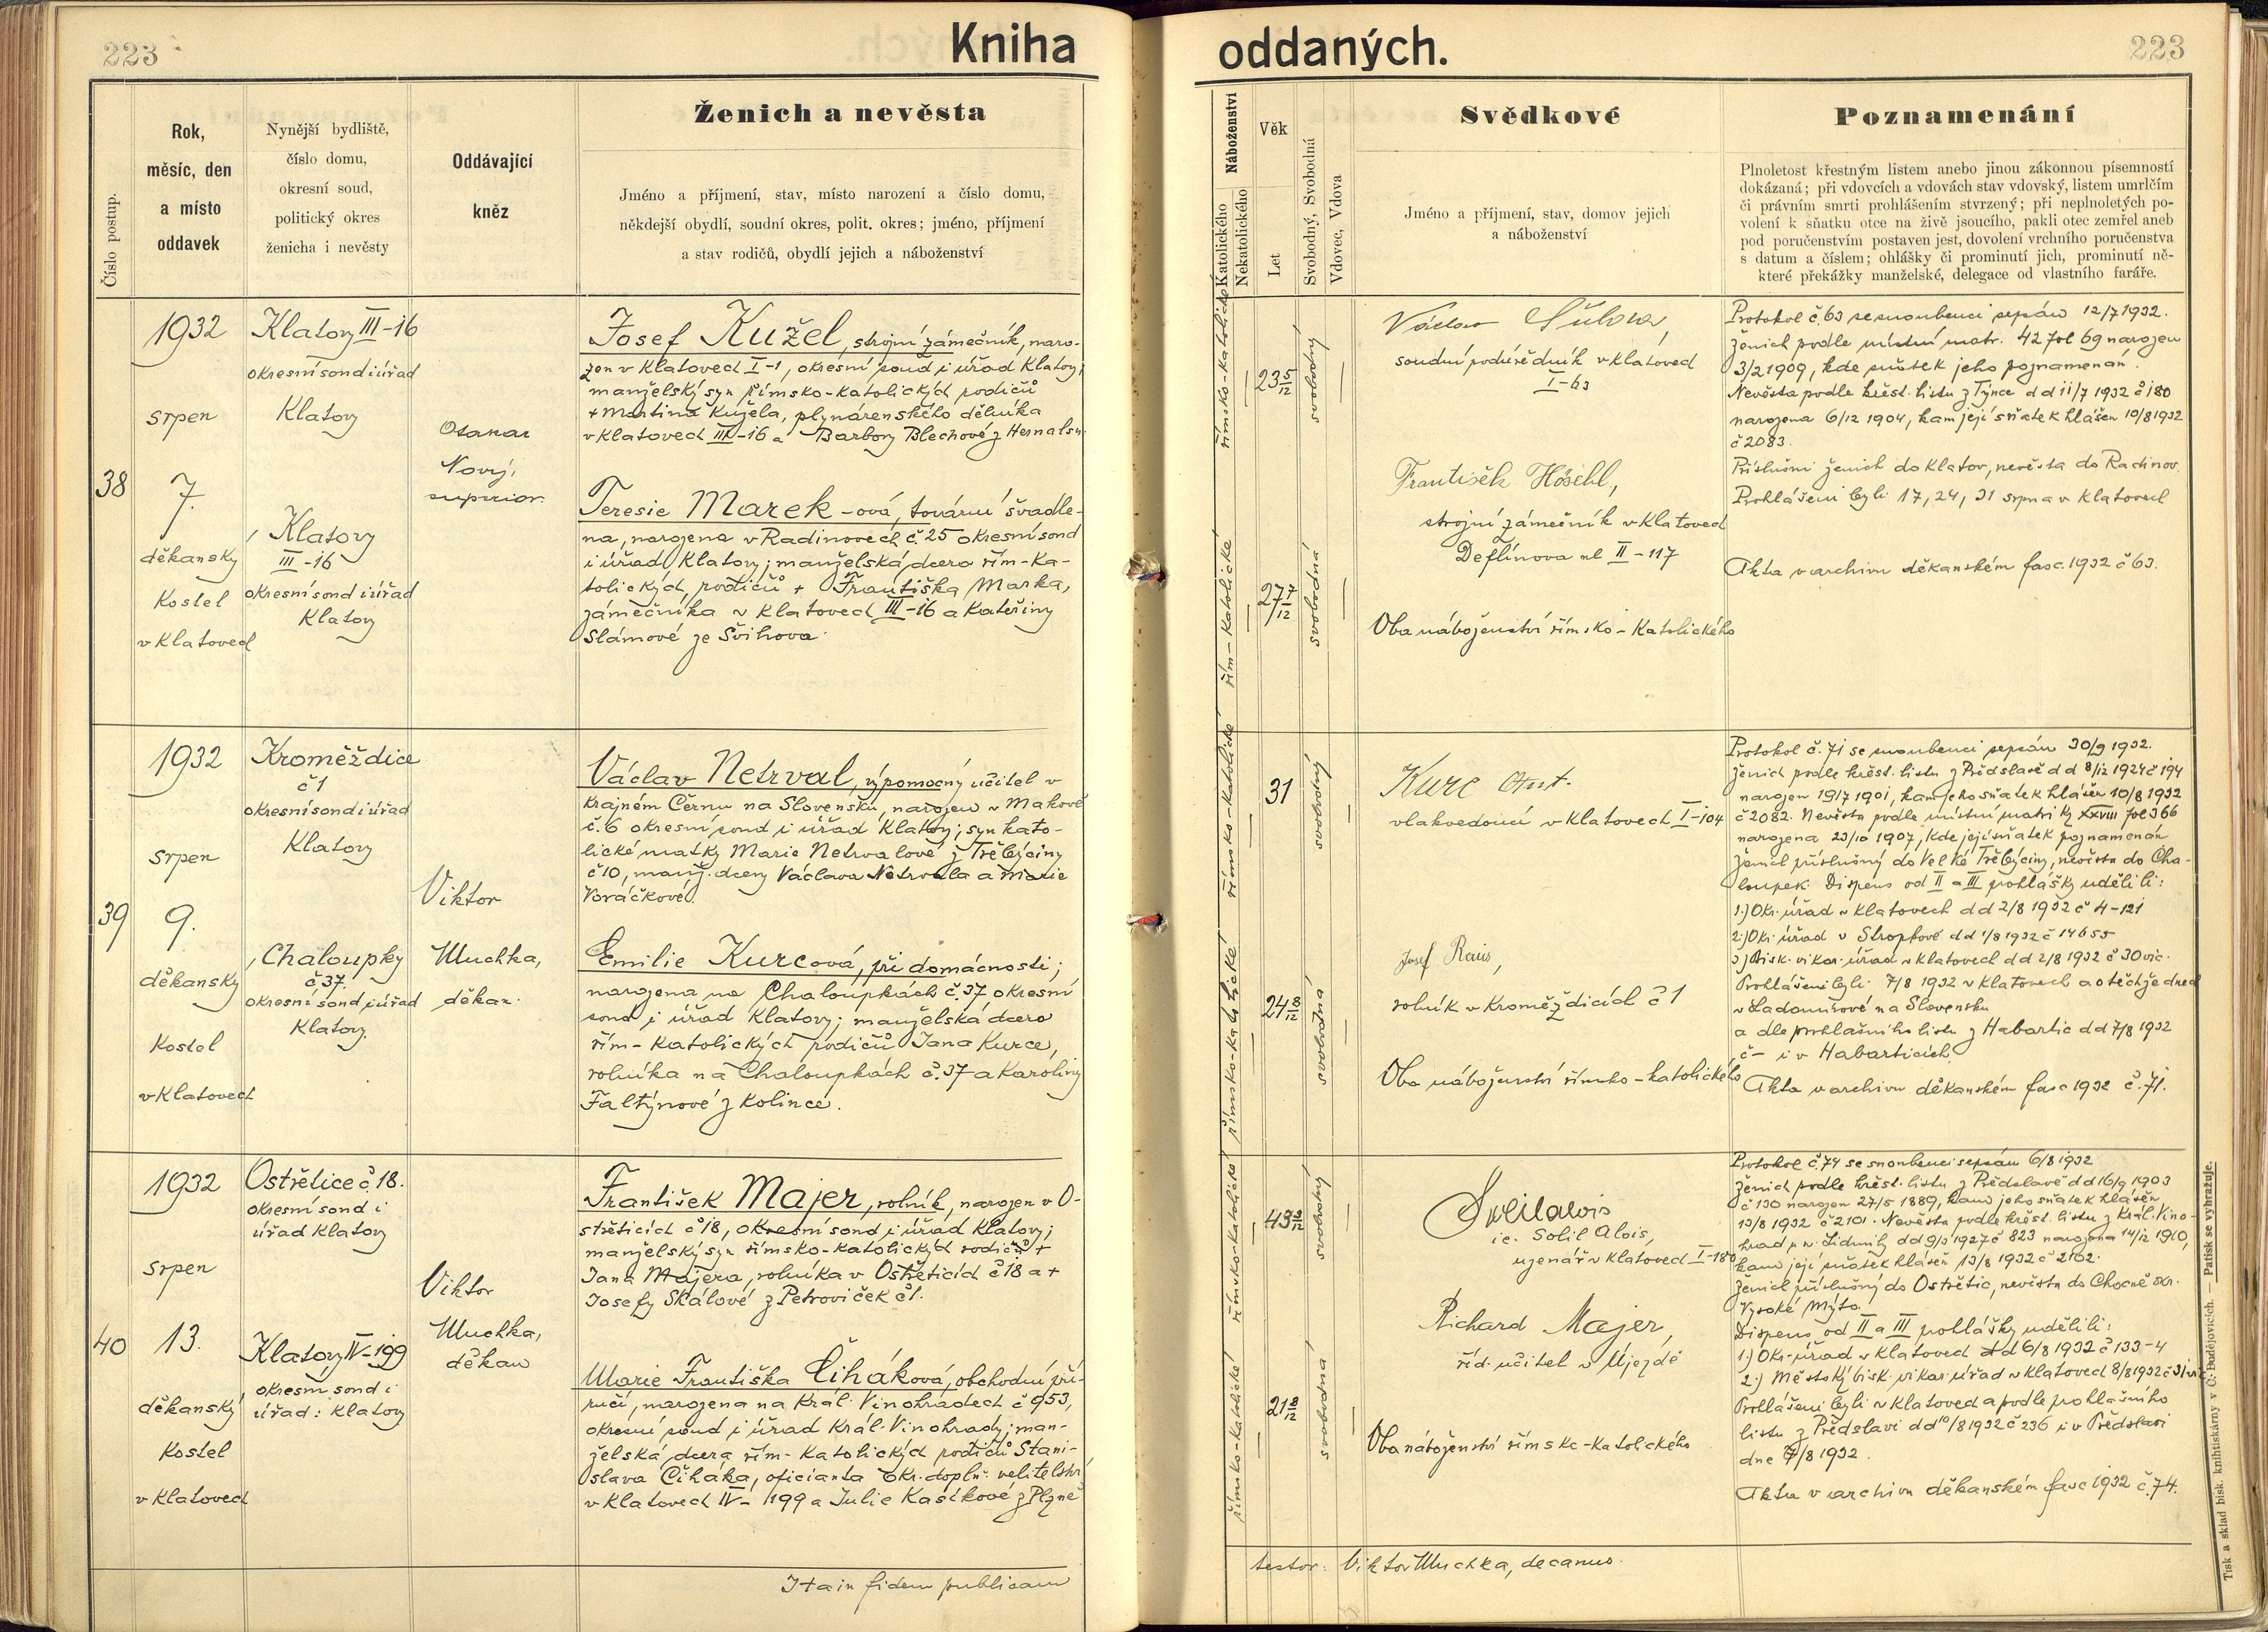 223
Kniha
oddaných.
223
Číslo postup.
Rok,
měsíc, den
a místo
oddavek
Nynější bydliště,
číslo domu,
okresní soud,
politický okres
ženicha i nevěsty
Oddávající
kněz
Ženich a nevěsta
Jméno a příjmení, stav, místo narození a číslo domu,
někdejší obydlí, soudní okres, polit. okres; jméno, příjmení
a stav rodičů, obydlí jejich a náboženství
Náboženství
Katolického
Nekatolického
Věk
Let
Svobodný, Svobodná
Vdovec, Vdova
Svědkové
Jméno a příjmení, stav, domov jejich
a náboženství
Poznamenání
Plnoletost křestným listem anebo jinou zákonnou písemností
dokázaná; při vdovcích a vdovách stav vdovský, listem umrlčím
či právním smrti prohlášením stvrzený; při neplnoletých po-
volení k sňatku otce na živě jsoucího, pakli otec zemřel aneb
pod poručenstvím postaven jest, dovolení vrchního poručenstva
s datum a číslem; ohlášky či prominutí jich, prominutí ně-
které překážky manželské, delegace od vlastního faráře.
38
1932
srpen
7.
děkanský
kostel
v Klatovech
Klatovy III-16
okresní soud i úřad
Klatovy
Klatovy
III-16
okresní soud i úřad
Klatovy
Otakar
Nový,
superior.
Josef Kužel, strojní zámečník, naro-
zen v Klatovech I-1, okresní soud i úřad Klatovy;
manželský syn římsko-katolických rodičů
+ Martina Kužela, plynárenského dělníka
v Klatovech III-16 a Barbory Blechové z Hernalsu.
Teresie Marek-ová, tovární švadle-
na, narozena v Radinovech č. 25 okresní soud
i úřad Klatovy; manželská dcera řím-ka-
tolických rodičů + Františka Marka,
zámečníka v Klatovech III-16 a Kateřiny
Slámové ze Švihova.
římsko-katolické
23 5/12
svobodný
řím-katolické
27 7/12
svobodná
Václav
soudní podúředník v Klatovech
I-63
František Höschl,
strojní zámečník v Klatovech
Deflínova ul II-117
Oba náboženství římsko-katolického
Protokol č. 63 se snoubenci sepsán 12/7 1932.
Ženich podle místní matr. 42 fol 69 narozen
3/2 1909, kde sňatek jeho poznamenán.
Nevěsta podle křest. listu z Týnce dd 11/7 1932 č 180
narozena 6/12 1904, kam její sňatek hlášen 10/8 1932
č 2083.
Příslušní ženich do Klatov, nevěsta do Radinov.
Prohlášeni byli 17, 24, 31 srpna v Klatovech
Akta v archivu děkanském fasc. 1932 č 63.
39
1932
srpen
9.
děkanský
kostel
v Klatovech
Kroměždice
č 1
okresní soud i úřad
Klatovy
Chaloupky
č 37.
okresní soud i úřad
Klatovy.
Viktor
Muchka,
děkan.
Václav Netrval, výpomocný učitel v
Krajném Černu na Slovensku, narozen v Makově
č. 6 okresní soud i úřad Klatovy; syn kato-
lické matky Marie Netrvalové z Třebýciny
č 10, manž. dcery Václava Netrvala a Marie
Voráčkové.
Emilie Kurcová, při domácnosti;
narozena na Chaloupkách č. 37 okresní
soud i úřad Klatovy; manželská dcera
řím-katolických rodičů Jana Kurce,
rolníka na Chaloupkách č. 37 a Karolíny
Faltýnové z Kolince.
římsko-katolické
31
svobodný
římsko-katolické
24 8/12
svobodná
Kurc Ant.
vlakvedoucí v Klatovech I-104
Josef Raus,
rolník v Kroměždicích č 1
Oba náboženství římsko-katolického
Protokol č. 71 se snoubenci sepsán 30/9 1932.
Ženich podle křest. listu z Předslavě dd 8/12 1924 č 194
narozen 19/7 1901, kam jeho sňatek hlášen 10/8 1932
č 2082. Nevěsta podle místní matriky XXVIII fol 366
narozena 23/10 1907, kde její sňatek poznamenán
Ženich příslušný do Velké Třebýciny, nevěsta do Cha-
loupek. Dispens od II a III prohlášky udělili:
1.) Okr. úřad v Klatovech dd 2/8 1932 č 4-121
2.) Okr. úřad v Stropkově dd 1/8 1932 č 14655
3) Bisk. vikar. úřad v Klatovech dd 2/8 1932 č 30 vic.
Prohlášeni byli 7/8 1932 v Klatovech a o téchže dnech
v Ladomírové na Slovensku
a dle prohlášního listu z Habartic dd 7/8 1932
č - i v Habarticích.
Akta v archivu děkanském fasc 1932 č. 71.
40
1932
srpen
13.
děkanský
kostel
v Klatovech
Ostřetice č. 18.
okresní soud i
úřad Klatovy
Klatovy IV-199
okresní soud i
úřad: Klatovy
Viktor
Muchka,
děkan
František Majer, rolník, narozen v O-
střeticích č 18, okresní soud i úřad Klatovy;
manželský syn římsko-katolických rodičů +
Jana Majera, rolníka v Ostřeticích č 18 a +
Josefy Skálové z Petroviček č 1.
Marie Františka Čiháková, obchodní pří-
ručí, narozena na Král. Vinohradech č 953,
okresní soud i úřad Král. Vinohrady; man-
želská dcera řím-katolických rodičů Stani-
slava Čiháka, oficianta okr. doplň. velitelství
v Klatovech IV-199 a Julie Kasíkové z Plzně
římsko-katolické
43 3/12
svobodný
římsko-katolické
21 8/12
svobodná
ic. Solil Alois,
uzenář v Klatovech I-180
Richard Majer,
říd. učitel v Újezdě
Oba náboženství římsko-katolického
Protokol č. 74 se snoubenci sepsán 6/8 1932
Ženich podle křest. listu z Předslavě dd 16/9 1903
č 130 narozen 27/5 1889, kam jeho sňatek hlášen
13/8 1932 č 2101. Nevěsta podle křest. listu z Král. Vino-
hrad u sv. Lidmily dd 9/3 1927 č 823 narozena 14/12 1910,
kam její sňatek hlášen 13/8 1932 č 2102.
Ženich příslušný do Ostřetic, nevěsta do Chocně okr.
Vysoké Mýto.
Dispens od II a III prohlášky udělili:
1.) Okr. úřad v Klatovech dd 6/8 1932 č 133-4
2.) Městský bisk. vikar. úřad v Klatovech 8/8 1932 č 31 vic
Prohlášeni byli v Klatovech a podle prohlašního
listu z Předslavi dd 10/8 1932 č 236 i v Předslavi
dne 7/8 1932.
Akta v archivu děkanském fasc 1932 č. 74.
Ita in fidem publicam
testor: Viktor Muchka, decanus.
Tisk a sklad bisk. knihtiskárny v Č. Budějovicích. — Patisk se vyhražuje.